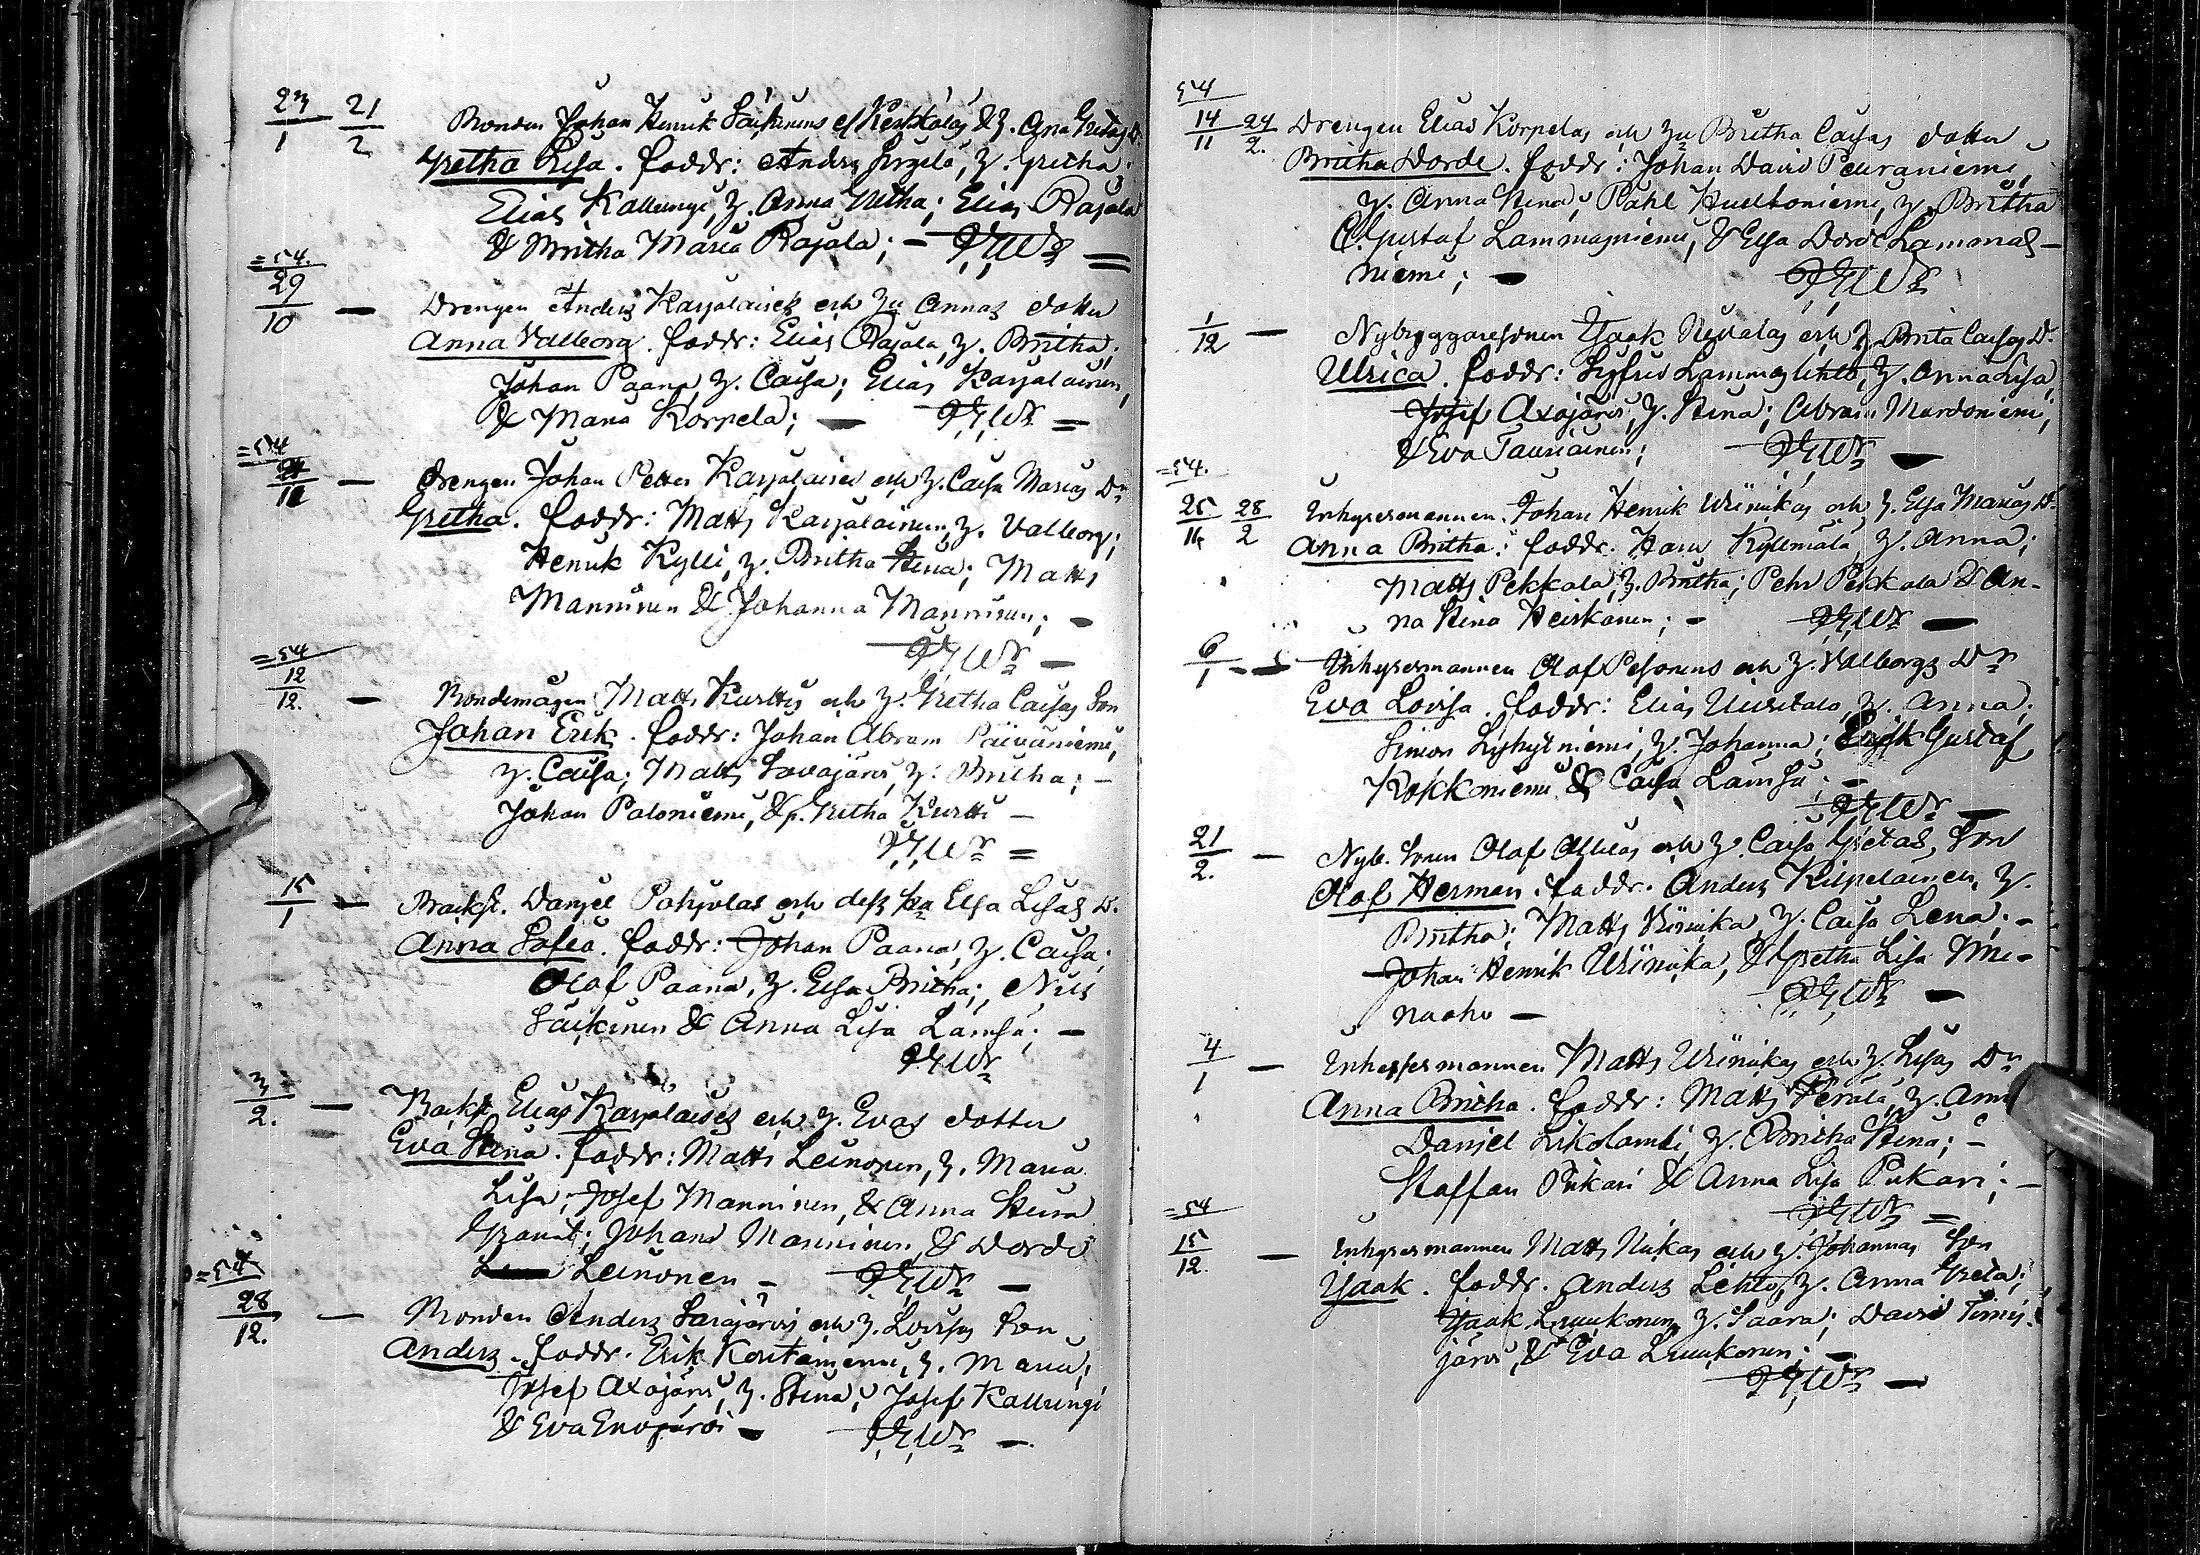 23/1 21/2 Bonden Johan Henrik Säikinens el. Keskitalos & h. Ana Gretas D.
Gretha Lisa. faddr: Anders Sirgelä, h. Gretha;
Elias Kallungi, h. Anna Gretha; Elias Rajala
& Britha Maria Rajala; –
=54.
29/10 — Drengen Anders Karjalaises och hu Annas dotter
Anna Valborg. faddr: Elias Rajala, h. Britha;
Johan Paana h. Caisa; Elias Karjalainen,
& Maria Korpela; —
=54
11 — Drengen Johan Petter Karjalaises och h. Caisa Marias Dr
Gretha. faddr: Matts Karjalainen, h. Valborg;
Henrik Kylli, h. Britha Stina; Matts
Manninen & Johanna Manninen; –
=54
12/12. — Bondemågen Matts Kurttis och h. Gretha Caisas Son
Johan Erik. faddr: Johan Abram Päiväniemi,
h. Caisa; Matts Sovajärvi, h. Britha; –
Johan Paloniemi, & p. Gretha Kurtti –
15/1 — Backst. Danjel Pohjolas och dess hu Elsa Lisas D.
Anna Sofia. faddr: Johan Paana, h. Caisa;
Olof Paana, h. Elsa Britha; Nils
Säikinen & Anna Lisa Lämsä; –
3/2. — Backst. Elias Karjalaises och h. Evas dotter
Eva Stina. faddr: Matts Leinonen, h. Maria
Lisa; Josef Manninen, & Anna Stina
Granit; Johans Manninen, & Dorde
Leinonen –
=54
28/12. — Bonden Anders Sarajärvis och h. Lovisas Son
Anders. faddr. Erik Kontaniemi, h. Maria;
Josef Axojärvi, h. Stina; Josef Kallungi
& Eva Enojärvi –
54
14/11 24/2. Drengen Elias Korpelas och hu Britha Caisas dotter
Britha Dorde. faddr: Johan David Peuraniemi,
h. Anna Stina; Påhl Huttoniemi, h. Britha
C. Gustaf Lammasniemi, & Elsa Dorde Lammas–
niemi; –
1/12 — Nybyggaresonen Isaak Nevalas och h. Brita Caisas D.
Ulrica. faddr: Sigfrid Lammaslehto, h. Anna Lisa,
Josef Axojärvi, h. Stina; Abram Murdoniemi,
& Eva Tauriainen;
=54.
25/11 28/2 Inhysesmannen Johan Henrik Wiinikas och h. Elsa Marias D.
Anna Britha. faddr. Hans Kyllmälä, h. Anna;
Matts Pekkala, h. Britha; Pehr Pekkala & An-
na Stina Heiskanen; –
6/1 — Inhysesmannen Olof Pesonens och h. Valborgs Dr
Eva Lovisa. faddr: Elias Uusitalo, h. Anna;
Simon Lyhytniemi, h. Johanna; Erik Gustaf
Kokkoniemi & Caisa Lämsä; –
21/2. — Nyb. Sonen Olof och h. Caisa Gretas, Son
Olof Herman. faddr. Anders Kilpeläinen, h.
Britha; Matts Wiinika, h. Caisa Lena. –
Johan Henrik Wiinika, & Gretha Lisa Vii-
naaho –
4/1 — Inhysesmannen Matts Wiinikas och h. Lisas Dr
Anna Britha. faddr: Matts Perälä, h. Anna
Danjel Likolambi, h. Britha Stina; –
Staffan Pirkari & Anna Lisa Pirkari; –
=54
15/12. — Inhysesmannen Matts Nikas och h. Johannas Son
Isaak. faddr. Anders Lehto, h. Anna Greta;
Isaak Luukonen, h. Saara; David Timis-
järvi, & Eva Luukonen; –